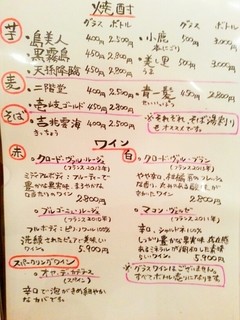 焼酎
グラス ボトル
グラス ボトル
芋
島美人 400円 2,500円
黒霧島 450円 2,800円
天孫降臨 400円 2,500円
小鹿 500円 3,000円
麦
二階堂 400円 2,500円
壱岐ゴールド 450円 2,800円
青一髪 450円 2,800円
そば
吉北雲海 400円 2,500円
それぞれ、そば湯割り
オススメです。
ワイン
赤
クロード・ヴァル・ルージュ
(フランス2012年)
ミディアムボディ：フルーティーで
豊かな果実味、まろやかな
口当たりのワイン
2,800円
フルボディ：ピノ・ノワール100%
洗練されたピュアで美味しい
ワイン
5,900円
白
クロード・ヴァル・ブラン
(フランス2013年)
2,800円
マコン・ヴェルゼ
(フランス2011年)
辛口、シャルドネ100%
しっかり豊かな果実味、存在感
あるミネラルが調和した美味
しいワイン
5,900円
スパークリングワイン
(スペイン)
辛口で泡がきめ細やか
※グラスワインはございません。
すべてボトル売りになります